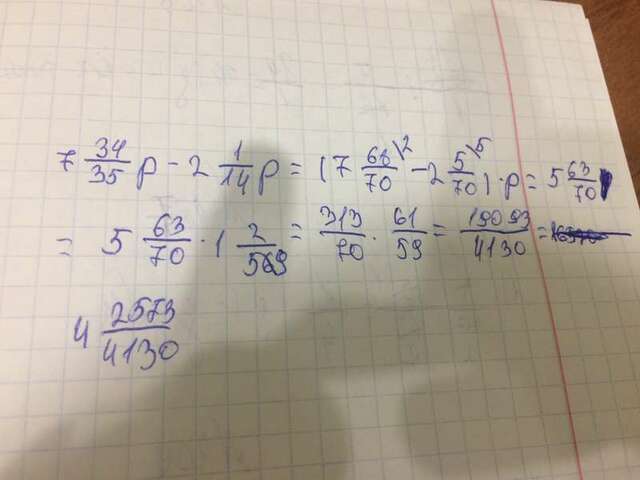 7 34/35 p - 2 1/14 p = (7 68/70 \2 - 2 5/70 \5) · p = 5 63/70
= 5 63/70 · 1 2/59 = 313/70 · 61/59 = 19093/4130 =
4 2573/4130